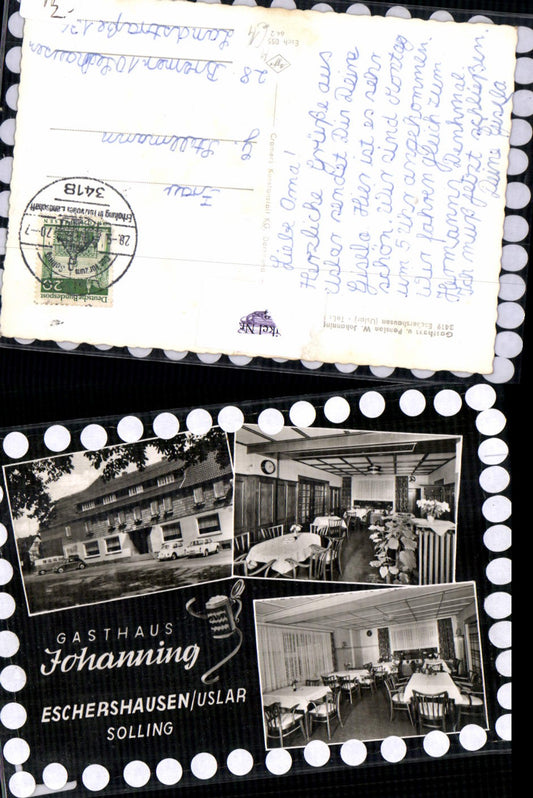 Liebe Oma!
Herzliche Grüße aus
Uslar sendet Dir Deine
Gisela. Hier ist es sehr
schön. Wir sind Montag
um 5 Uhr angekommen.
Wir fahren gleich zum
Hermanns Denkmal.
Ich muß jetzt schließen.
Deine Gisela
Frau
Stellmann
28 Bremen 10
Landstraße 121
3418
Erholung in
28.
70-7
20
Deutsche Bundespost
Cramers Kunstanstalt KG, Dortmund
Esch 055
Gasthaus u. Pension W. Johanning
3419 Eschershausen (Uslar) - Tel.
GASTHAUS
Johanning
ESCHERSHAUSEN/USLAR
SOLLING